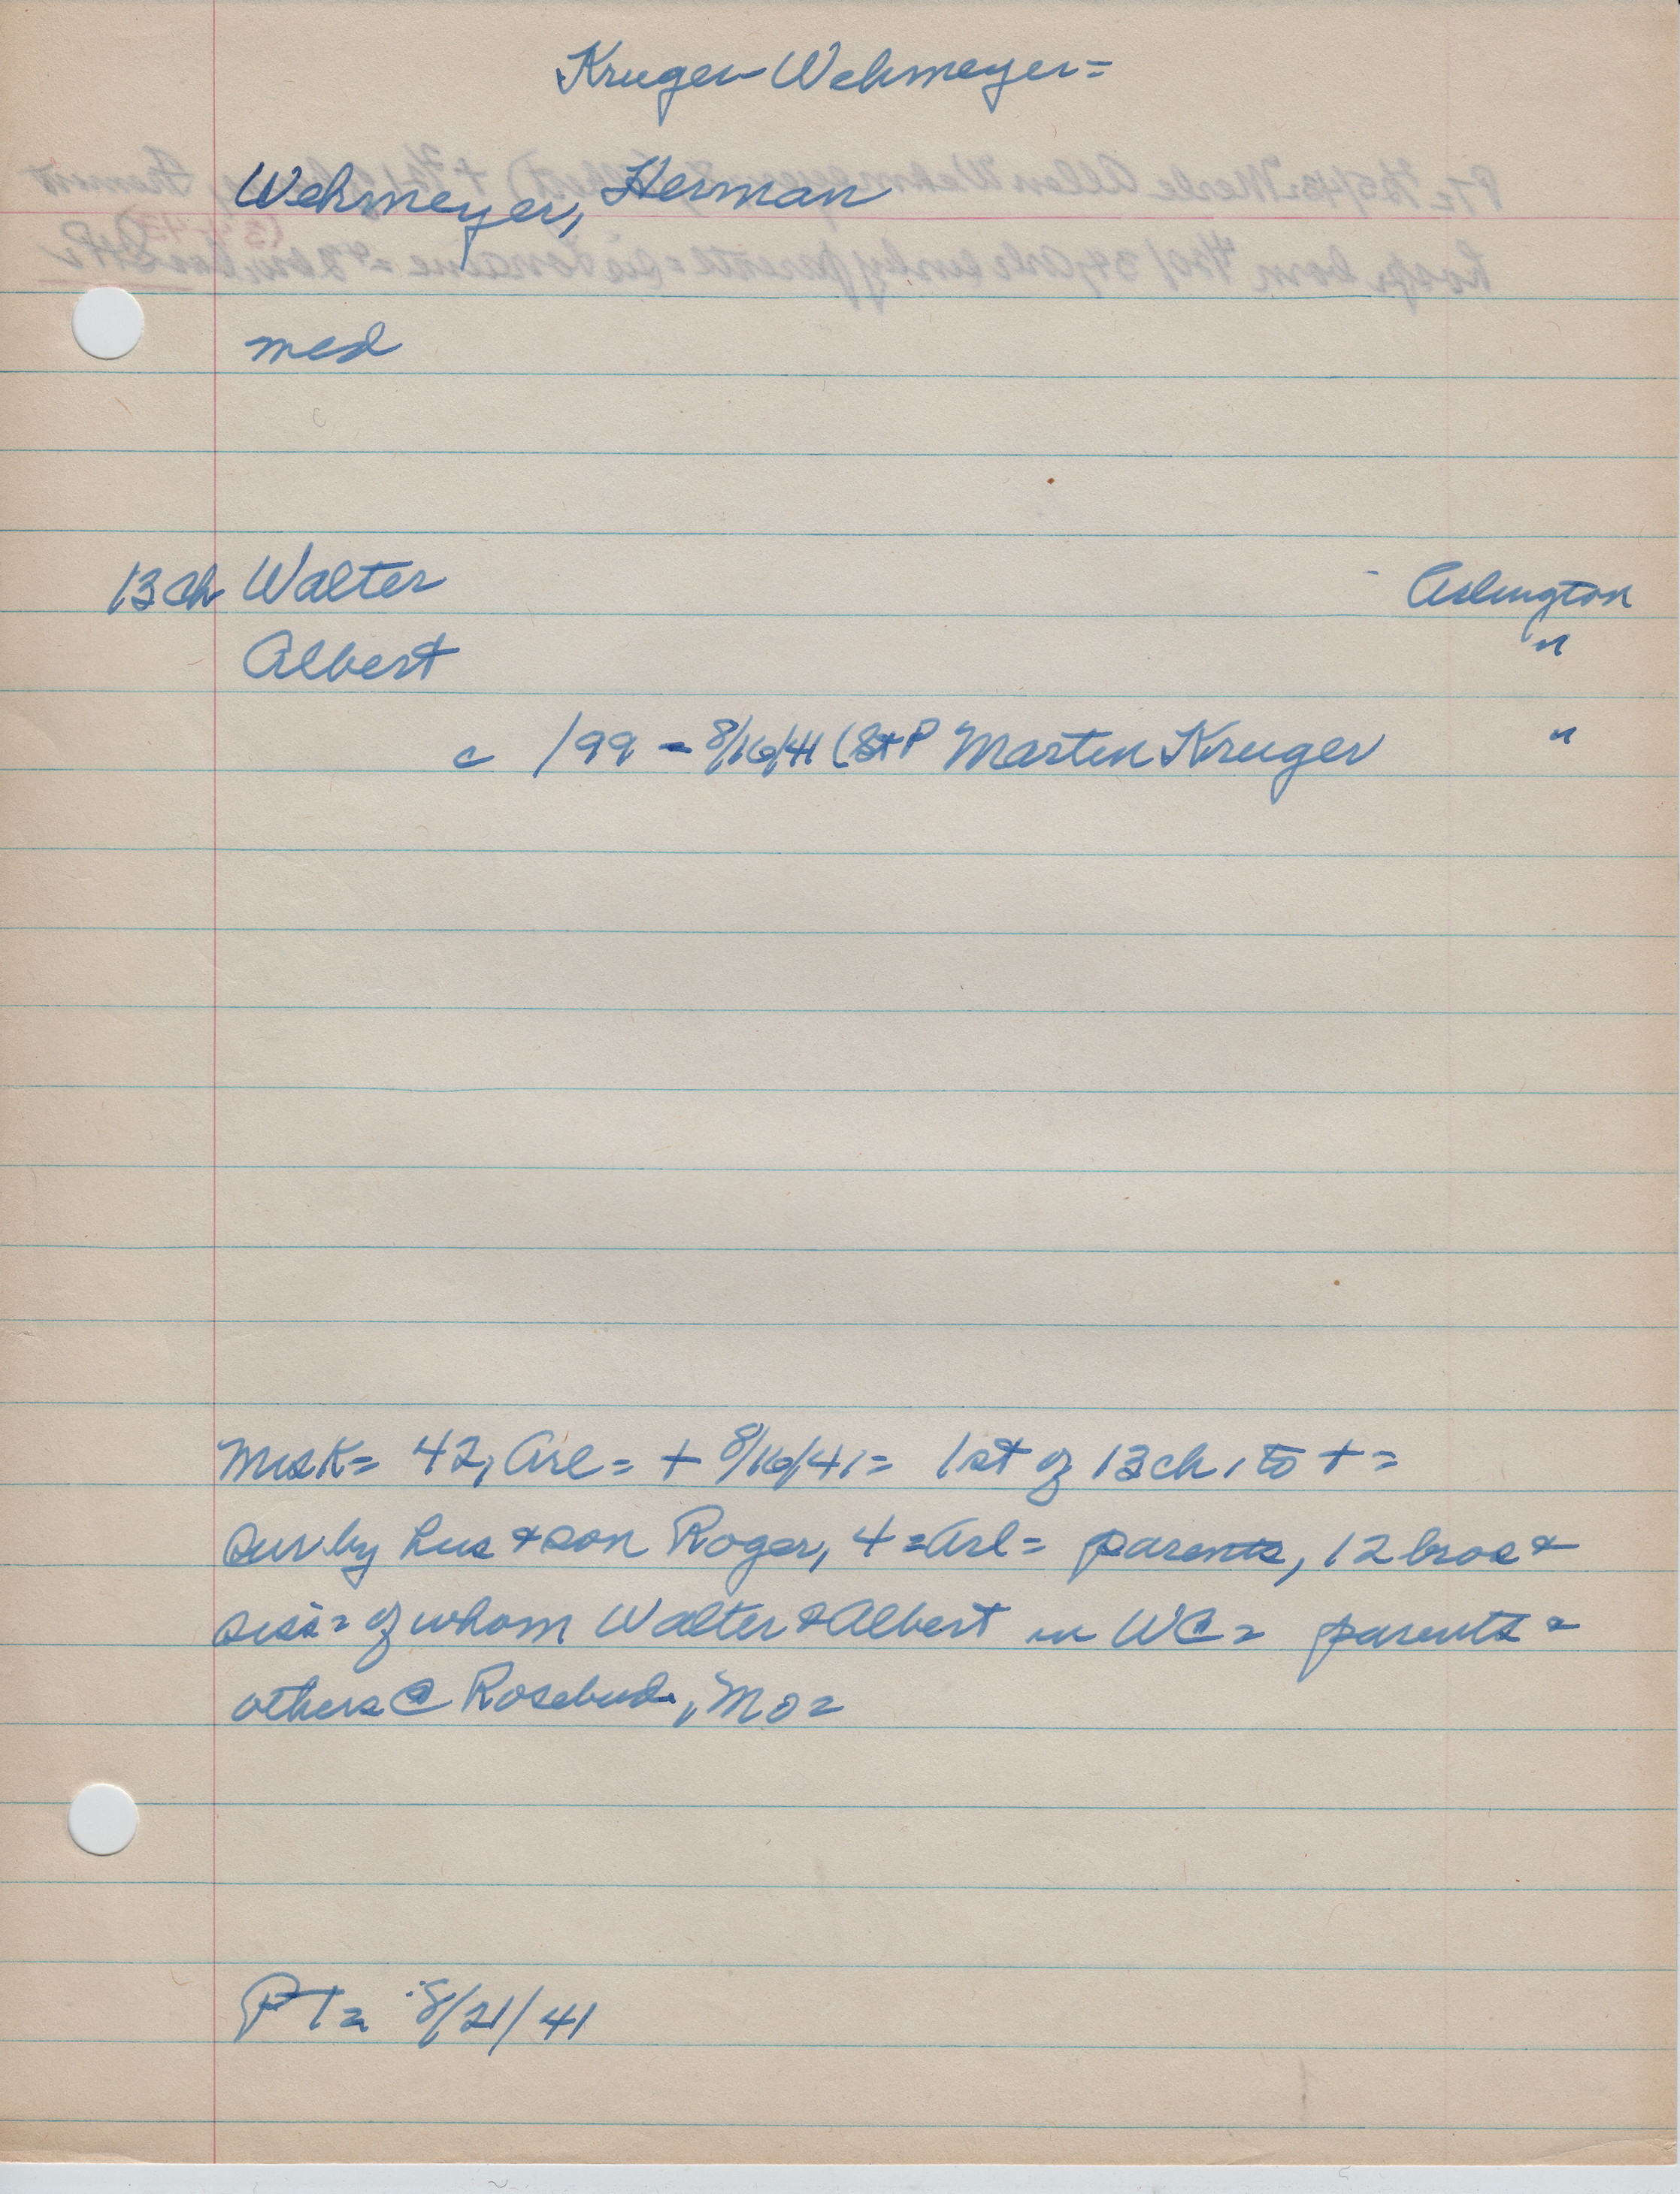 Kruger-Wehmeyer=
Wehmeyer, Herman
med
13 ch Walter Arlington
Albert "
c 1899 - 8/16/41 (St P Martin Kruger "
Mrs K= 42, Arl= + 8/16/41= 1st of 13 ch, to + =
sur by hus & son Roger, 4 = Arl= parents, 12 bros &
siss= of whom Walter & Albert in WC= parents &
others @ Rosebud, Mo=
PT= 8/21/41